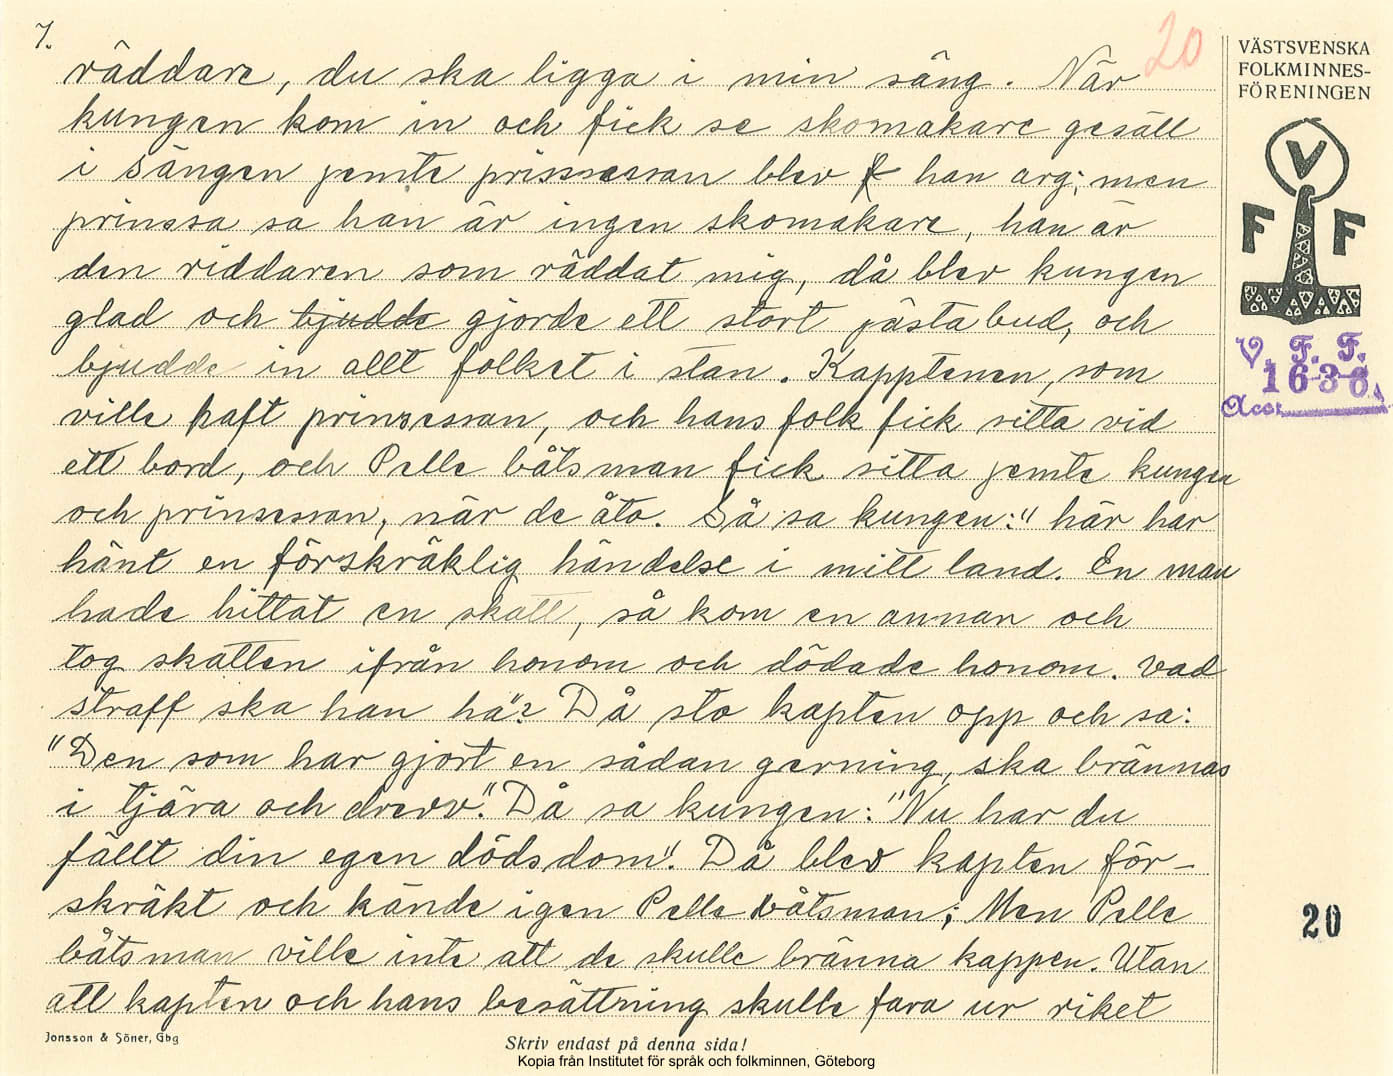 7.
20
räddare, du ska ligga i min säng. När
kungen kom in och fick se skomakare gesäll
i sängen jemte prinssessan blev han arg; men
prinssa sa han är ingen skomakare, han är
den riddaren som räddat mig, då blev kungen
glad och bjudde gjorde ett stort jästabud, och
bjudde in allt folket i stan. Kapptenen, som
ville haft prinsessan, och hans folk fick sitta vid
ett bord, och Pelle båtsman fick sitta jemte kungen
och prinsessan, när de åto. Så sa kungen:" här har
hänt en förskräklig händelse i mitt land. En man
hade hittat en skatt, så kom en annan och
tog skatten ifrån honom och dödade honom. Vad
straff ska han ha"? Då sto kapten opp och sa:
"Den som har gjort en sådan gerning, ska brännas
i tjära och drevv". Då sa kungen: "Nu har du
fällt din egen dödsdom". Då blev kapten för-
skräkt och kände igen Pelle båtsman; Men Pelle
båtsman ville inte att de skulle bränna kappen. Utan
att kapten och hans besättning skulle fara ur riket
VÄSTSVENSKA
FOLKMINNES-
FÖRENINGEN
V
F F
V. F. F.
1636
Acc:
20
Jonsson & Söner, Gbg
Skriv endast på denna sida!
Kopia från Institutet för språk och folkminnen, Göteborg